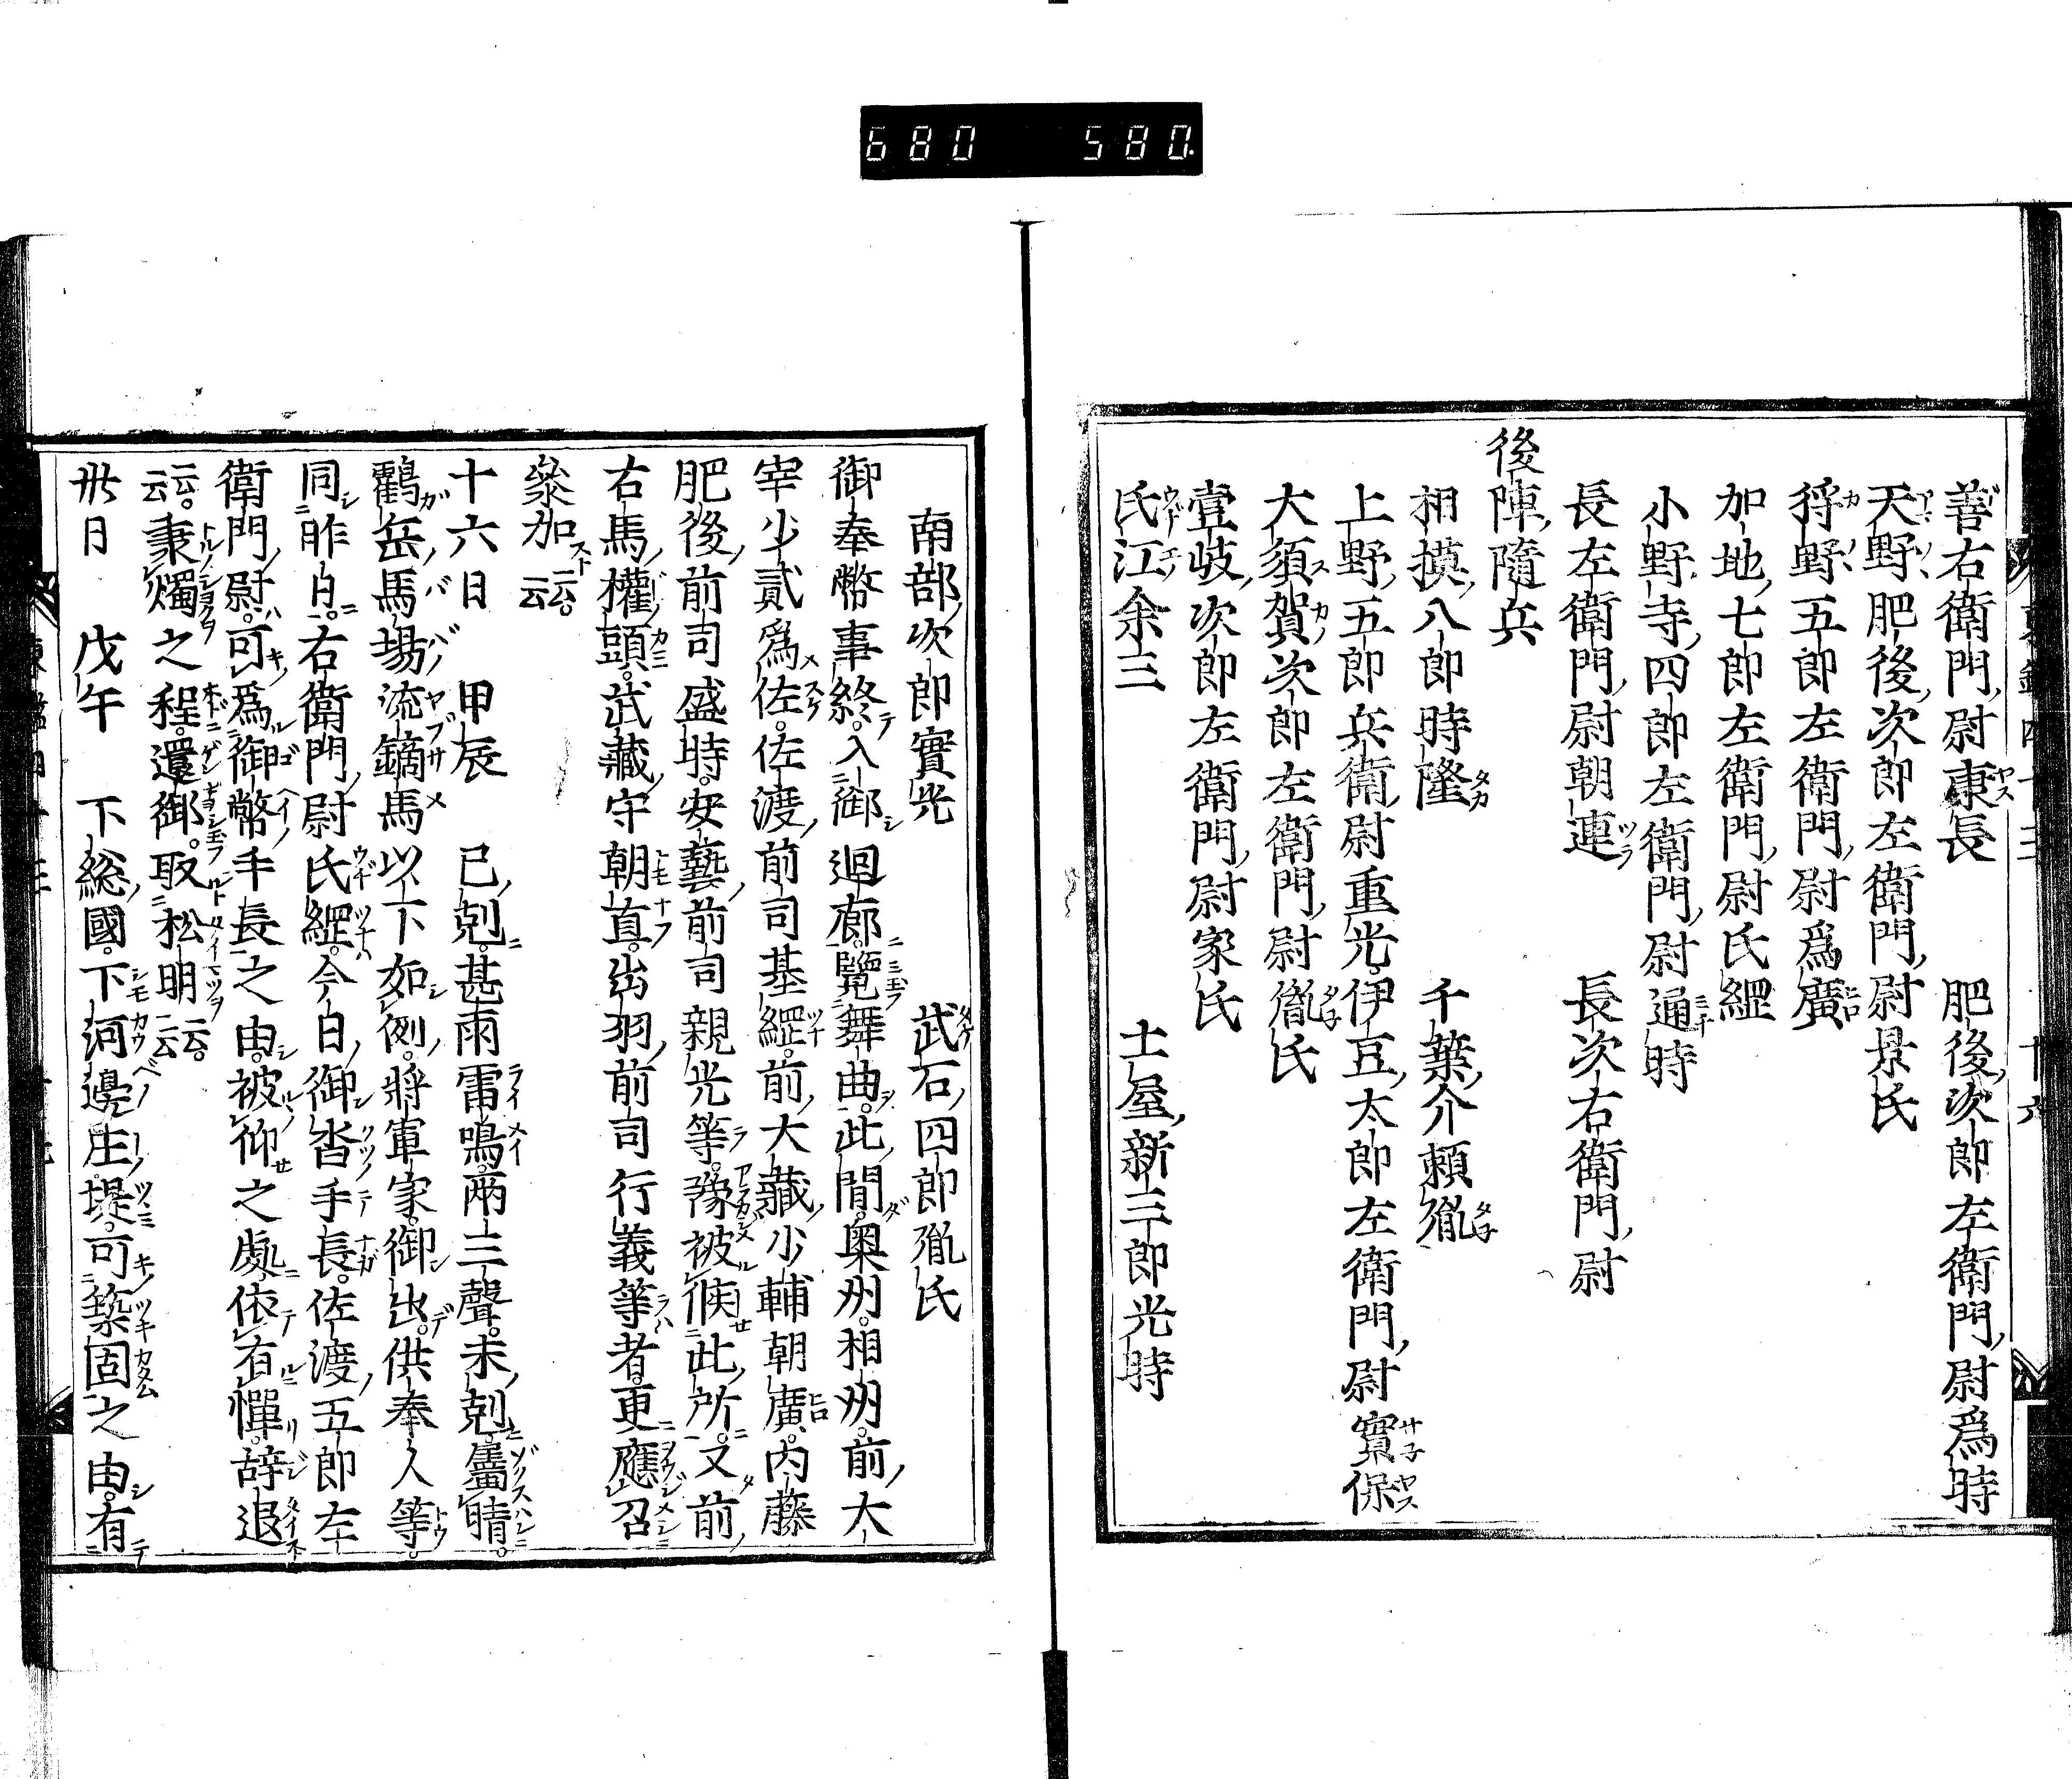 680 580.
善右衛門尉康長 肥後次郎左衛門尉爲時
天野肥後次郎左衛門尉景氏
狩野五郎左衛門尉爲廣
加地七郎左衛門尉氏綱
小野寺四郎左衛門尉通時
長左衛門尉朝連 長次右衛門尉
後陣隨兵
相摸八郎時隆 千葉介頼胤
上野五郎兵衛尉重光 伊豆太郎左衛門尉實保
大須賀次郎左衛門尉胤氏
壹岐次郎左衛門尉家氏
氏江余三 土屋新三郎光時
南部次郎實光 武石四郎胤氏
御奉幣事終。入御廻廊。覽舞曲。此間。奥州。相州。前大
宰少貳爲佐。佐渡前司基綱。前大藏少輔朝廣。内藤
肥後前司盛時。安藝前司親光等。豫被候此所。又前
右馬權頭。武藏守朝直。出羽前司行義等者。更應召
參加云云。
十六日 甲辰 巳剋。甚雨雷鳴。兩三聲。未剋。屬晴。
鶴岳馬場流鏑馬以下如例。將軍家御出。供奉人等。
同昨日。右衛門尉氏綱。今日御沓手長。佐渡五郎左
衛門尉。可爲御幣手長之由。被仰之處。依有憚。辭退
云云。秉燭之程。還御。取松明云云。
卅日 戊午 下總國。下河邊庄。堤。可築固之由。有